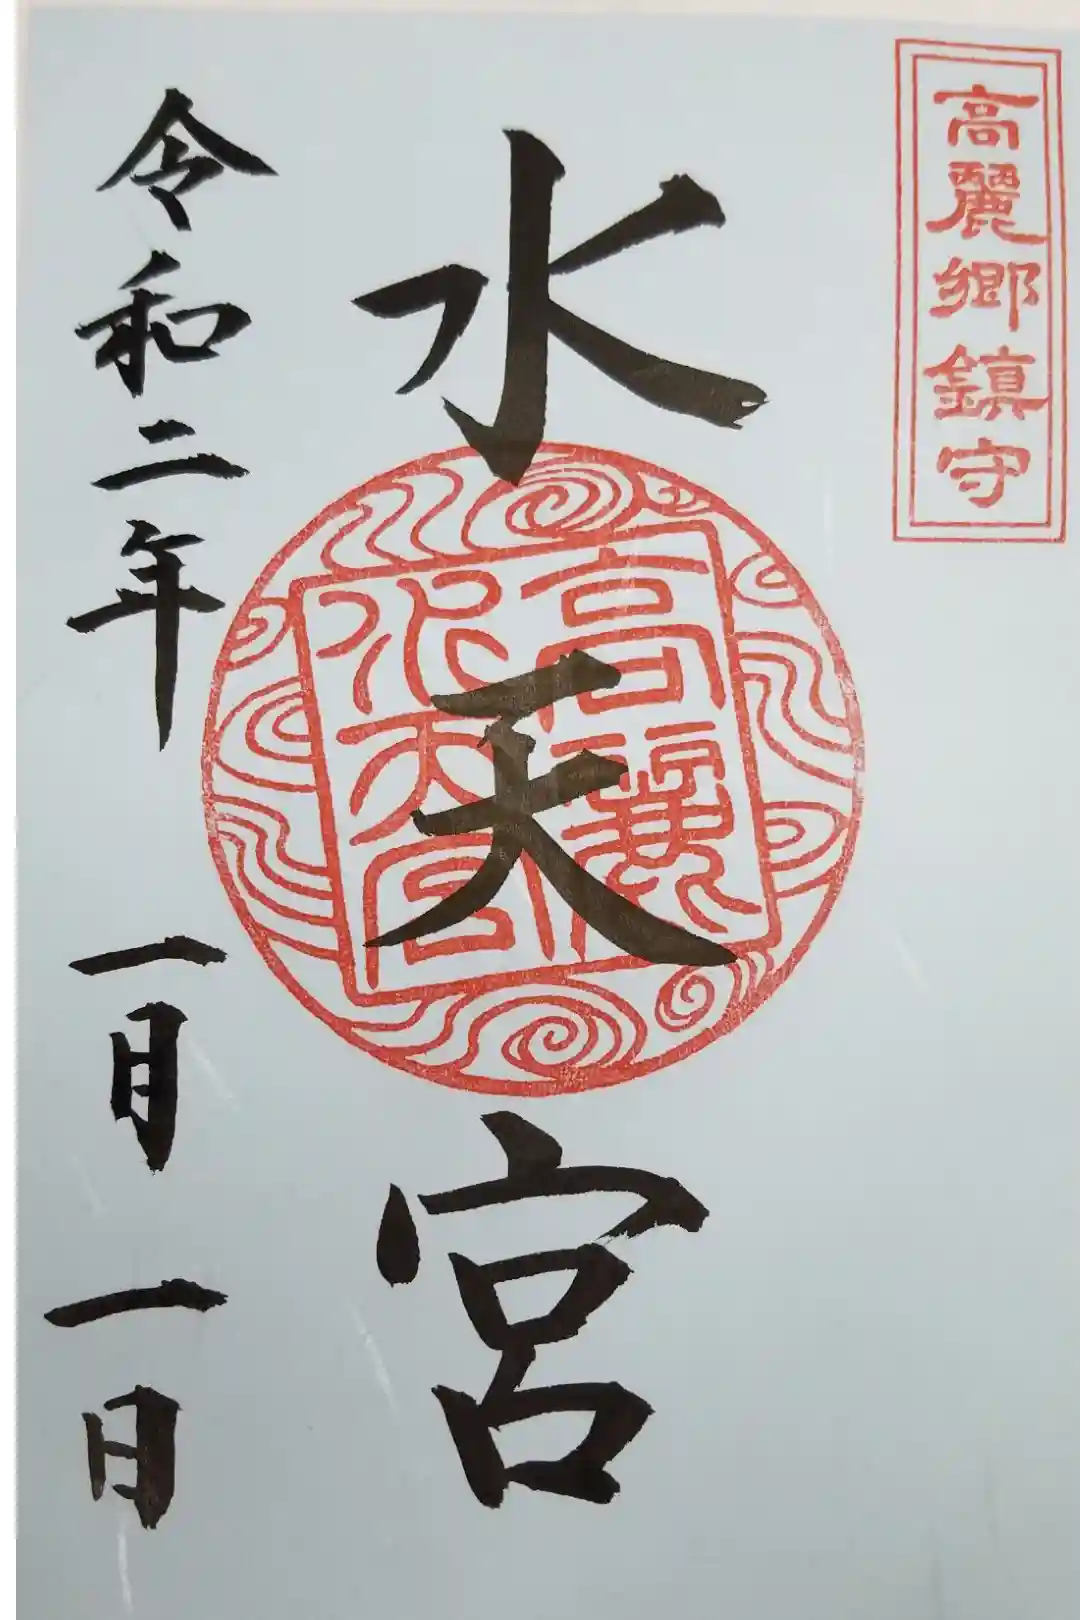 高麗郷鎮守
水天宮
高麗
水天宮
令和二年一月一日